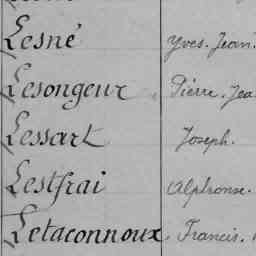 Lesné Yves. Jean.
Lesongeur Pierre. Jea
Lessart Joseph.
Lestfrai Alphonse.
Letaconnoux Francis.